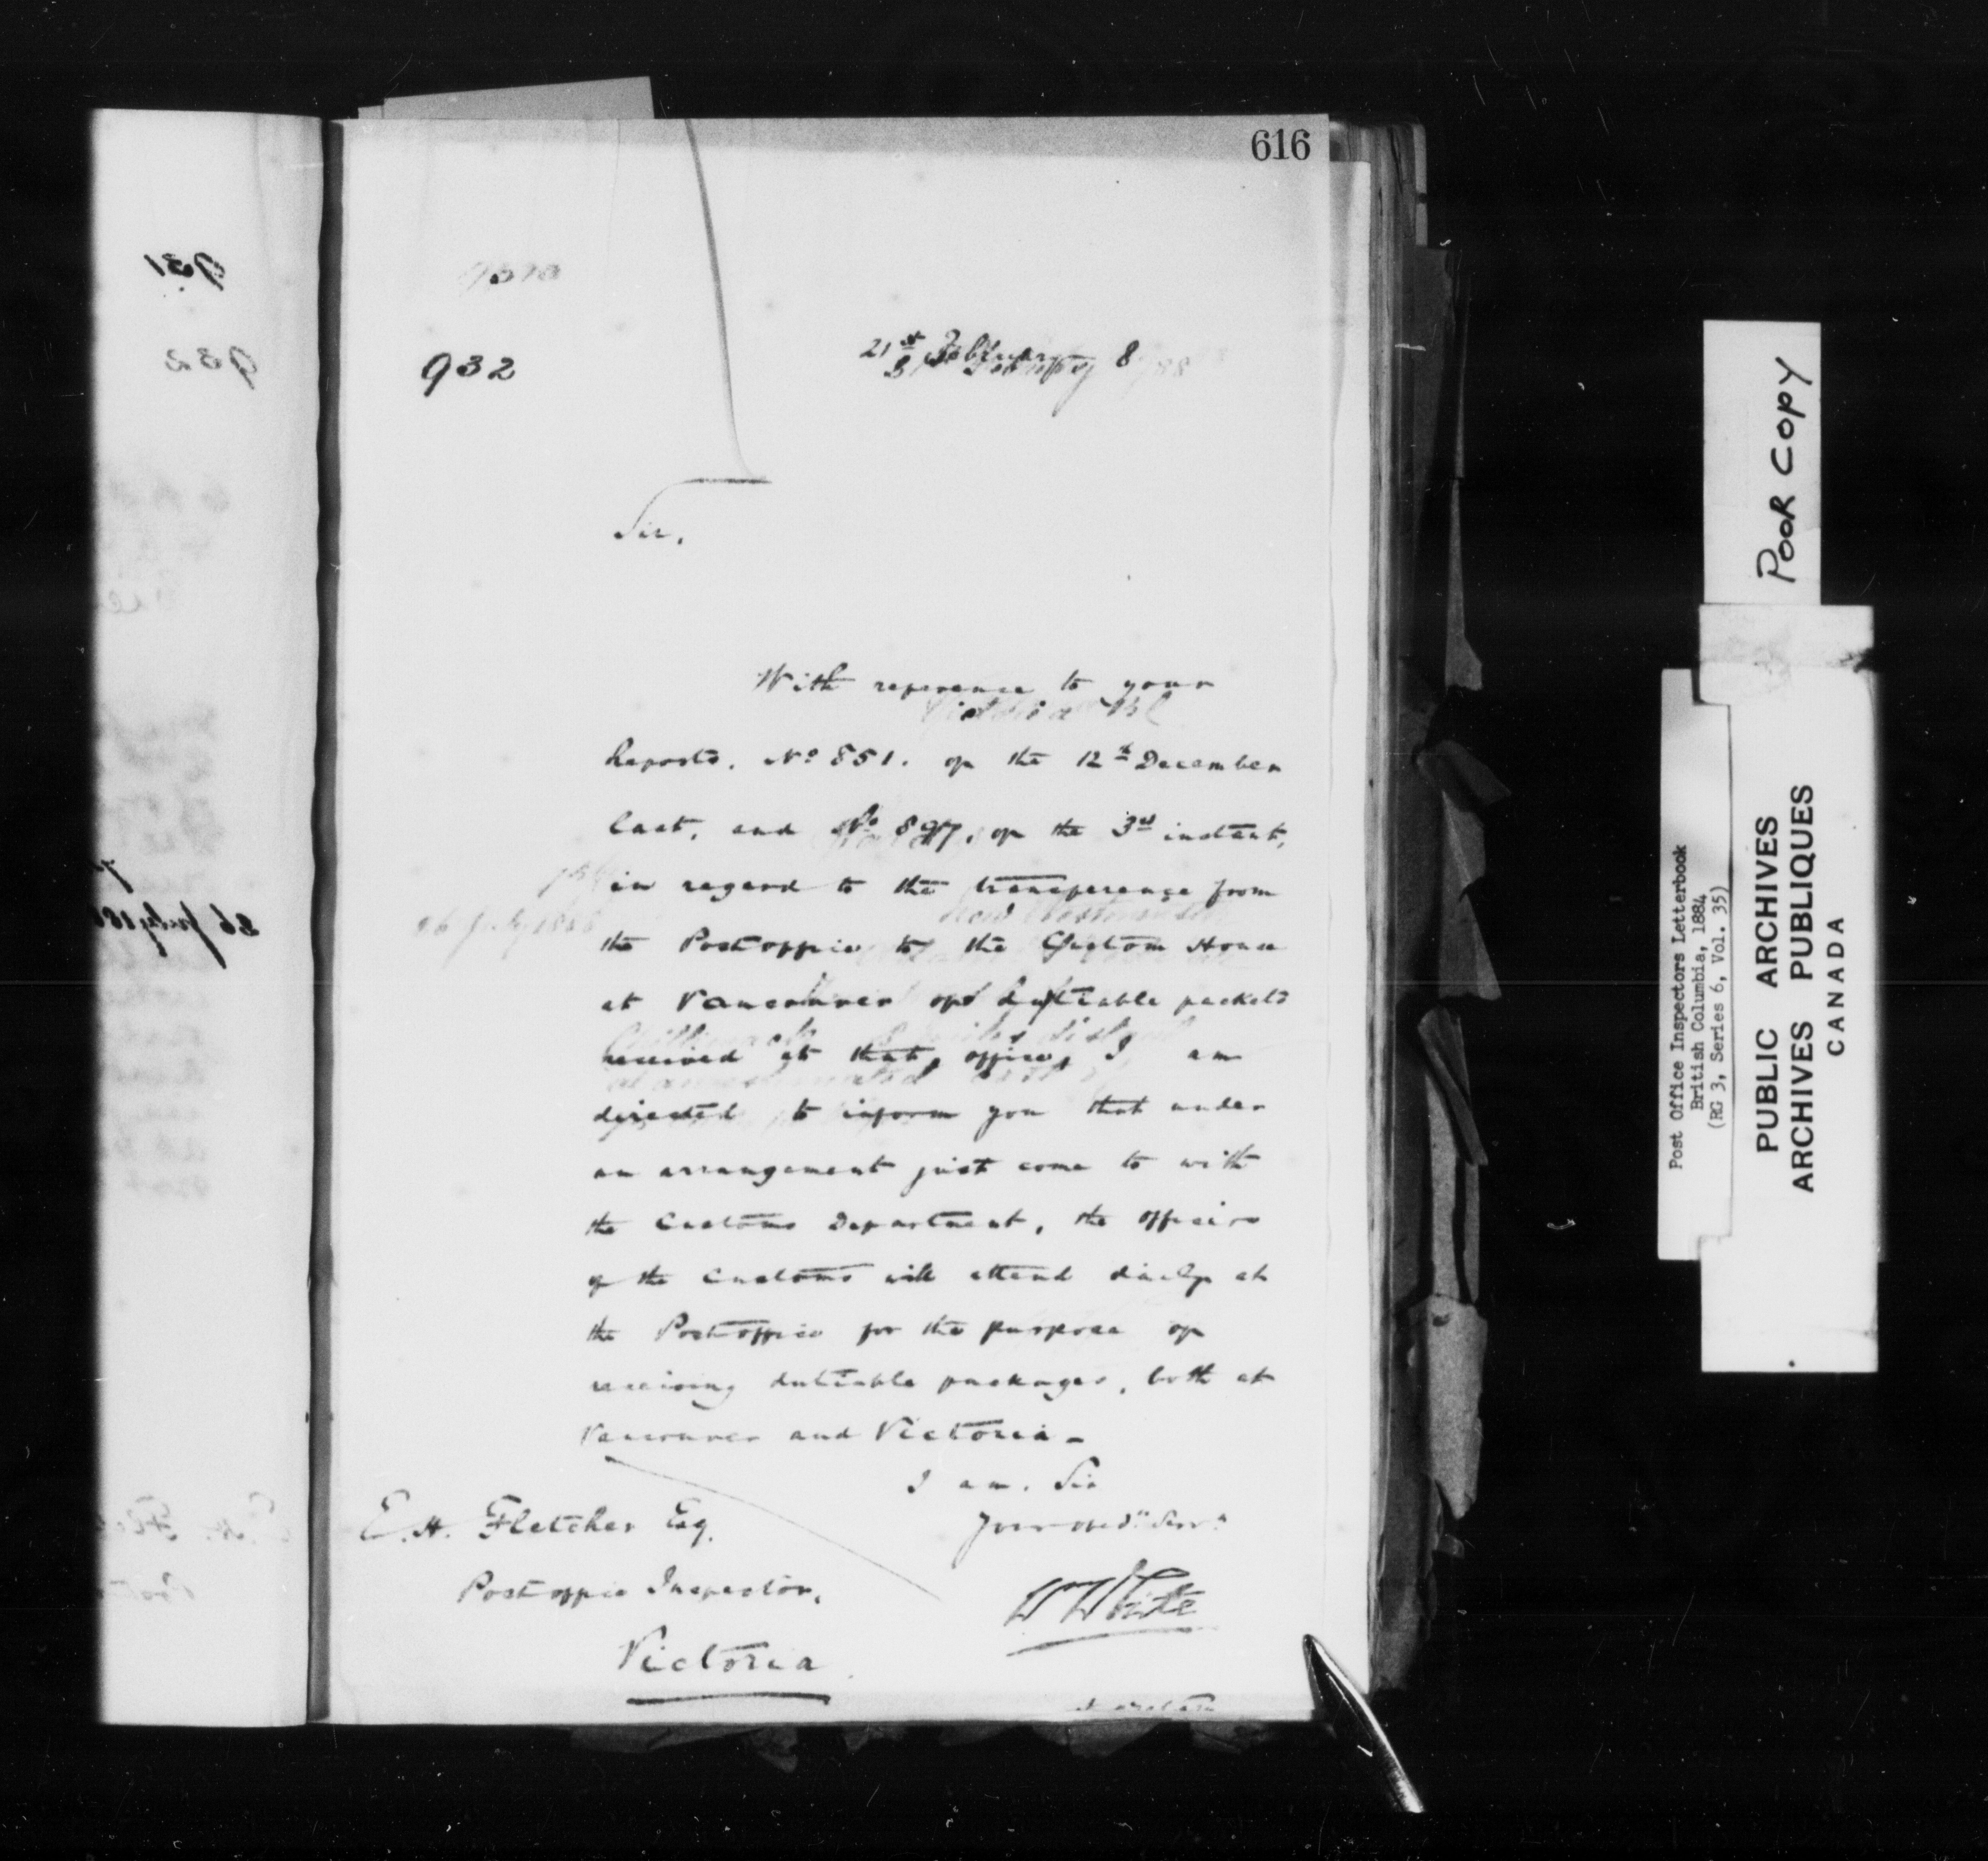 616
931
932
932
21st February 8
Sir,
With reference to your
Victoria BC
Reports. No 851. of the 12th December
last, and No 897, of the 3rd instant,
in regard to the transference from
26 July 188
26 July 1888
the Postoffice to the Custom House
at Vancouver of dutiable packets
received at that office, I am
directed to inform you that under
an arrangement just come to with
the Customs Department, the officers
of the Customs will attend daily at
the Postoffice for the purpose of
receiving dutiable packages, both at
Vancouver and Victoria -
I am, Sir
Your obedt Servt
E. H. Fletcher Esq.
Postoffice Inspector,
W White
Victoria
POOR COPY
Post Office Inspectors Letterbook
British Columbia, 1884
(RG 3, Series 6, Vol. 35)
PUBLIC ARCHIVES
ARCHIVES PUBLIQUES
CANADA